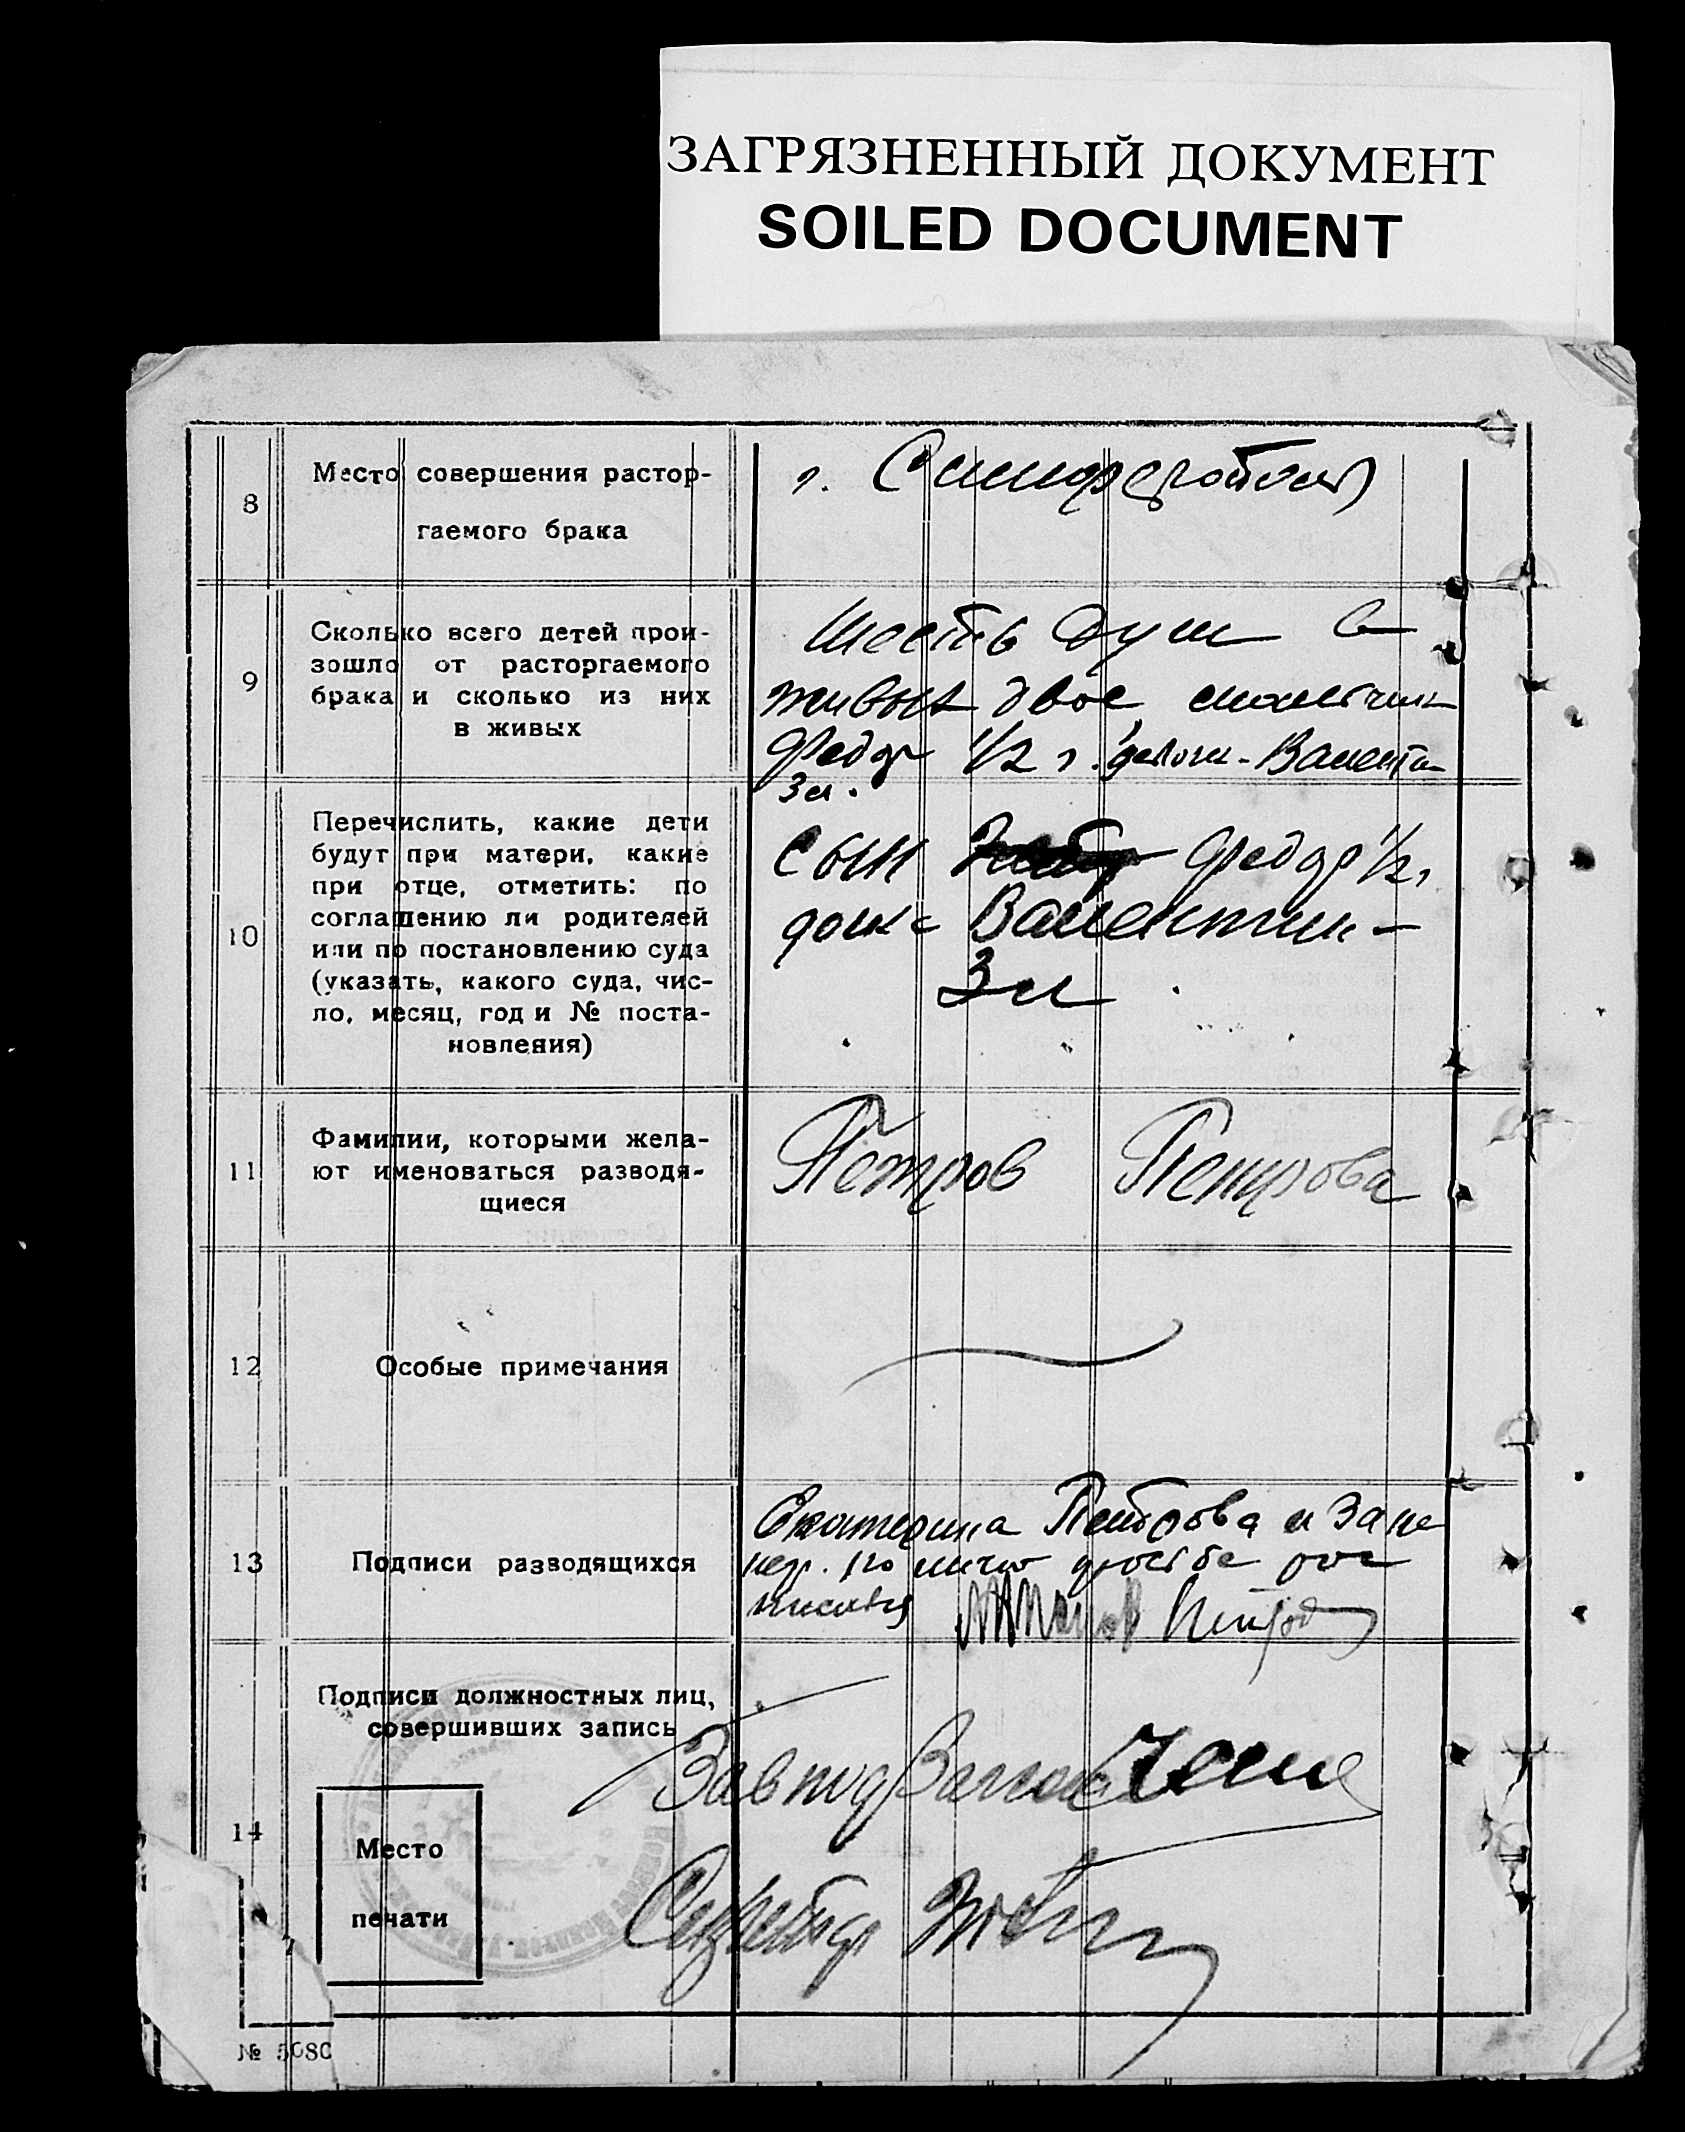 ЗАГРЯЗНЕННЫЙ ДОКУМЕНТ
SOILED DOCUMENT
8
Место совершения растор-
гаемого брака
г. Симферополь
9
Сколько всего детей прои-
зошло от расторгаемого
брака и сколько из них
в живых
Шесть душ в
живых двое, мальчик
Федор 1/2 г.
3 л.
10
Перечислить, какие дети
будут при матери, какие
при отце, отметить: по
соглашению ли родителей
или по постановлению суда
(указать, какого суда, чис-
ло, месяц, год и № поста-
новления)
сын Федор 1/2 г
дочь Валентин-
3 л
11
Фамилии, которыми жела-
ют именоваться разводя-
щиеся
Петров Петрова
12
Особые примечания
13
Подписи разводящихся
Екатерина Петрова и за не
негр. по личн просьбе рос
писался
14
Подписи должностных лиц,
совершивших запись
Место
печати
Завподзагсом
Секретарь
№ 5080